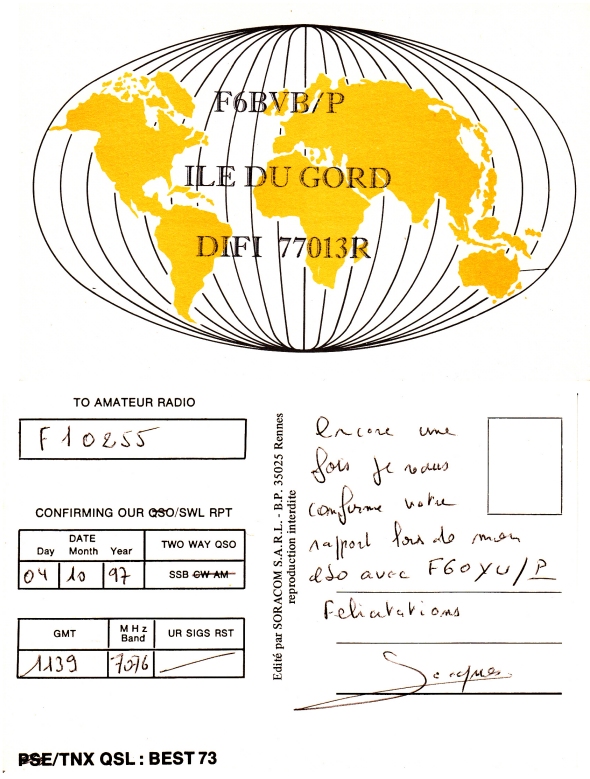 F6BVB/P
ILE DU GORD
DIFI 77013R
TO AMATEUR RADIO
F 10255
CONFIRMING OUR QSO/SWL RPT
DATE
Day Month Year
TWO WAY QSO
04 10 97
SSB CW AM
GMT
MHz Band
UR SIGS RST
1139
7076
PSE/TNX QSL : BEST 73
Edité par SORACOM S.A.R.L. - B.P. 35025 Rennes
reproduction interdite
encore une
fois je vous
confirme votre
rapport lors de mon
QSO avec F6OYU/P
Felicitations
Jacques